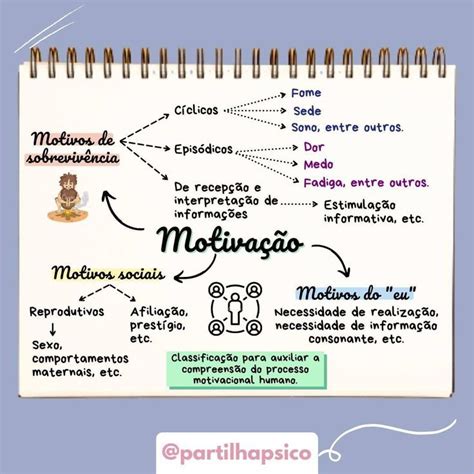 Motivos de
sobrevivência
Cíclicos
Fome
Sede
Sono, entre outros.
Episódicos
Dor
Medo
Fadiga, entre outros.
De recepção e
interpretação de
informações
Estimulação
informativa, etc.
Motivação
Motivos sociais
Reprodutivos
Sexo,
comportamentos
maternais, etc.
Afiliação,
prestígio,
etc.
Motivos do "eu"
Necessidade de realização,
necessidade de informação
consonante, etc.
Classificação para auxiliar a
compreensão do processo
motivacional humano.
@partilhapsico